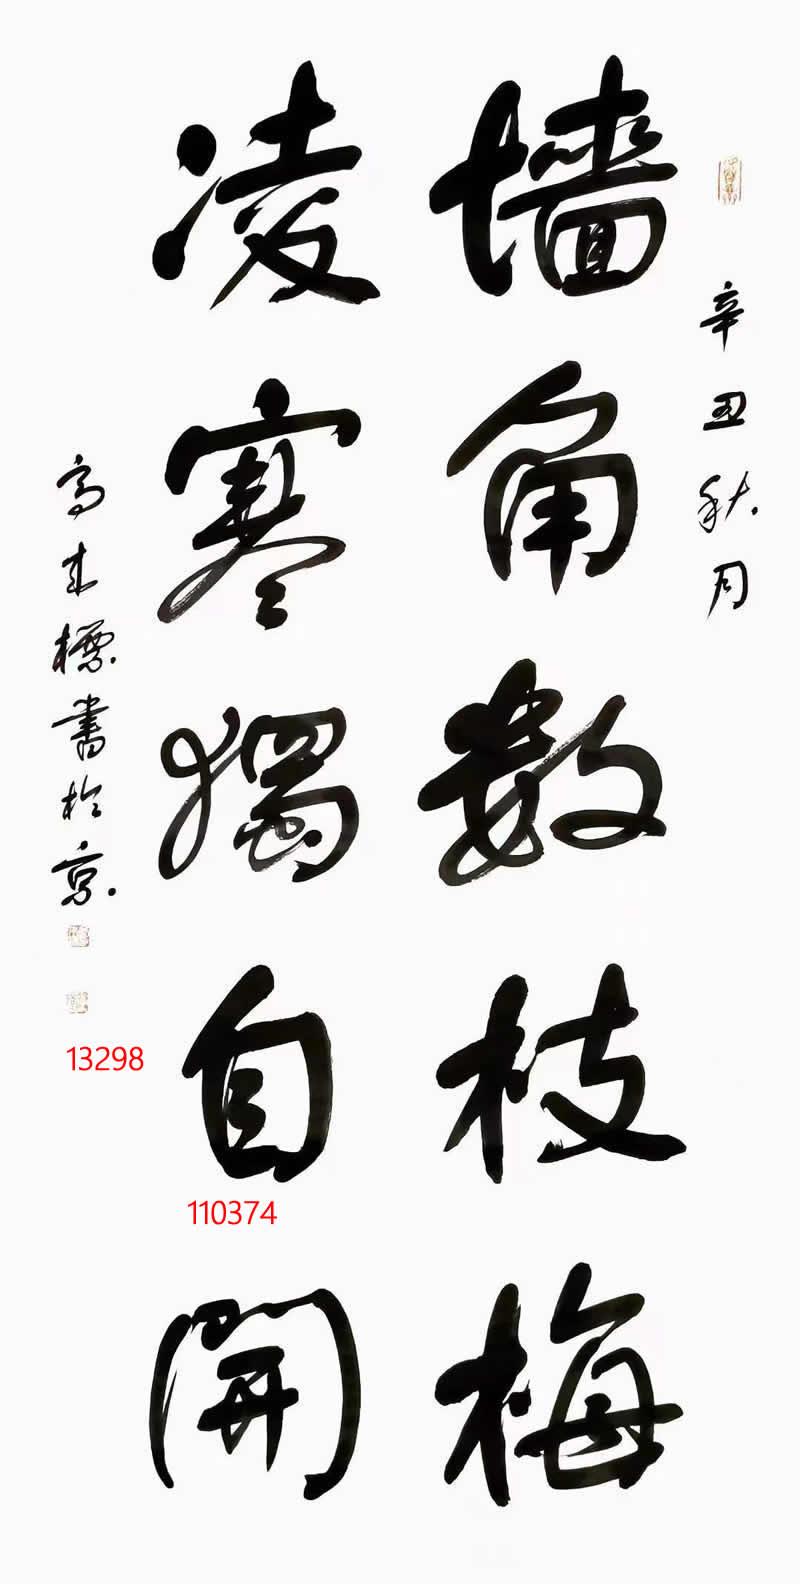 辛丑秋月
墙角数枝梅
凌寒独自開
高来標書於京
13298
110374